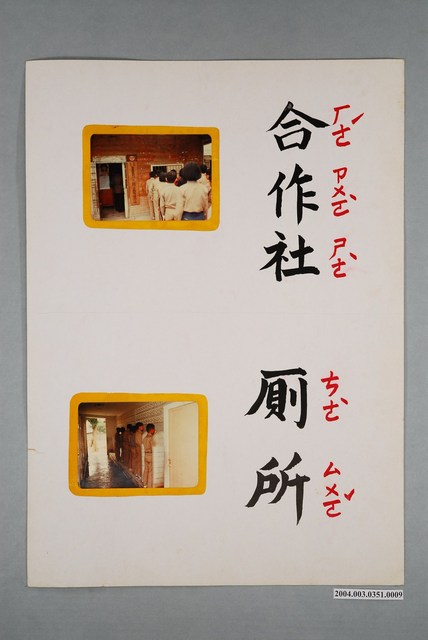 合作社
ㄏㄜˊ ㄗㄨㄛˋ ㄕㄜˋ
廁所
ㄘㄜˋ ㄙㄨㄛˇ
2004.003.0351.0009